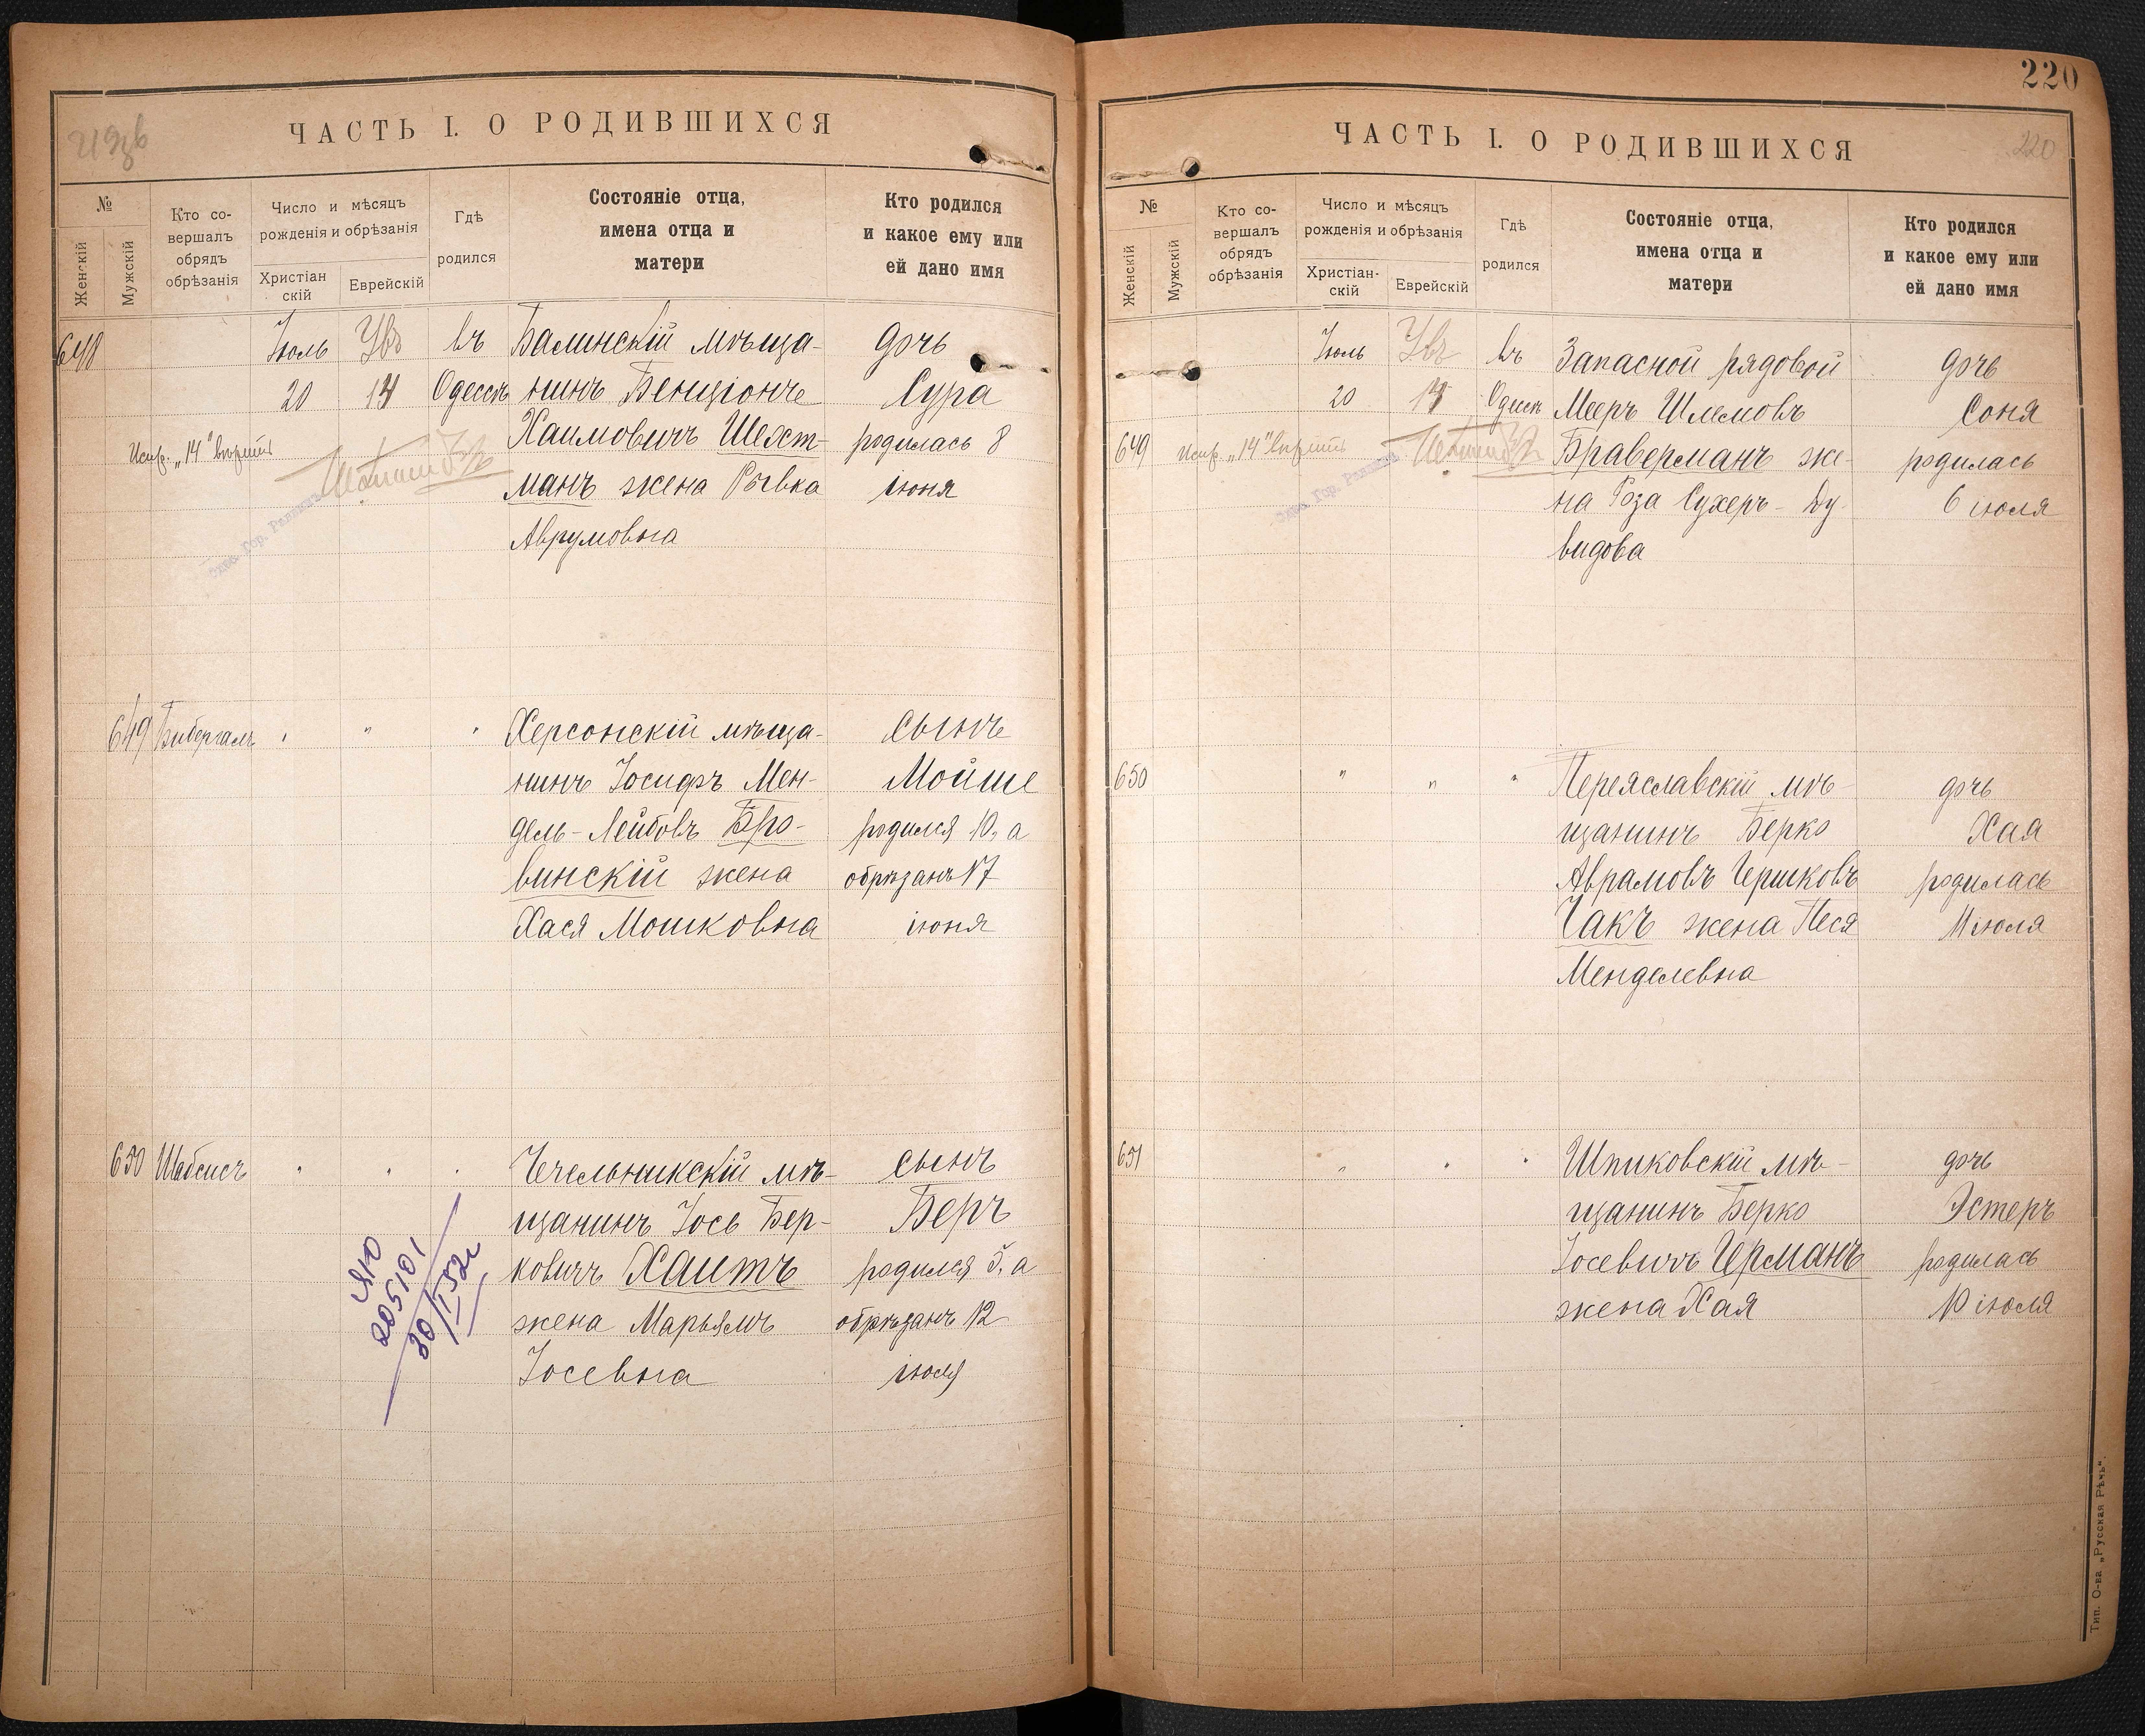 219об
ЧАСТЬ I. О РОДИВШИХСЯ
№
Женскій
Мужскій
Кто со-
вершалъ
обрядъ
обрѣзанія
Число и мѣсяцъ
рожденія и обрѣзанія
Христіан
скій
Еврейскій
Гдѣ
родился
Состояніе отца,
имена отца и
матери
Кто родился
и какое ему или
ей дано имя
648
Іюль
20
14
въ
Одессѣ
Балинскій мѣща-
нинъ Бенціонъ
Хаимовичъ Шехт-
манъ жена Ривка
Аврумовна
дочь
Сура
родилась 8
іюня
Испр. „14" вѣрить
649
Бибергалъ
"
"
"
Херсонскій мѣща-
нинъ Іосифъ Мен-
дель-Лейбовъ Бро-
винскій жена
Хася Мошковна
сынъ
Мойше
родился 10, а
обрѣзанъ 17
іюня
650
Шабсисъ
"
"
"
Чечельникскій мѣ-
щанинъ Іось Бер-
ковичъ Хаитъ
жена Марьямъ
Іосевна
сынъ
Беръ
родился 5, а
обрѣзанъ 12
іюля
205101
30/I 52г
220
ЧАСТЬ I. О РОДИВШИХСЯ
220
№
Женскій
Мужскій
Кто со-
вершалъ
обрядъ
обрѣзанія
Число и мѣсяцъ
рожденія и обрѣзанія
Христіан-
скій
Еврейскій
Гдѣ
родился
Состояніе отца,
имена отца и
матери
Кто родился
и какое ему или
ей дано имя
649
Іюль
20
14
въ
Одессѣ
Запасной рядовой
Мееръ Шлемовъ
Браверманъ же-
на Роза Сухеръ-Ду-
видова
дочь
Соня
родилась
6 іюля
Испр. „14" вѣрить
650
"
"
"
Переяславскій мѣ-
щанинъ Берко
Аврамовъ Гершковъ
Чакъ жена Песя
Менделевна
дочь
Хая
родилась
11 іюля
651
"
"
"
Шпиковскій мѣ-
щанинъ Берко
Іосевичъ Германъ
жена Хая
дочь
Эстеръ
родилась
10 іюля
Тип. О-ва „Русская Рѣчь".